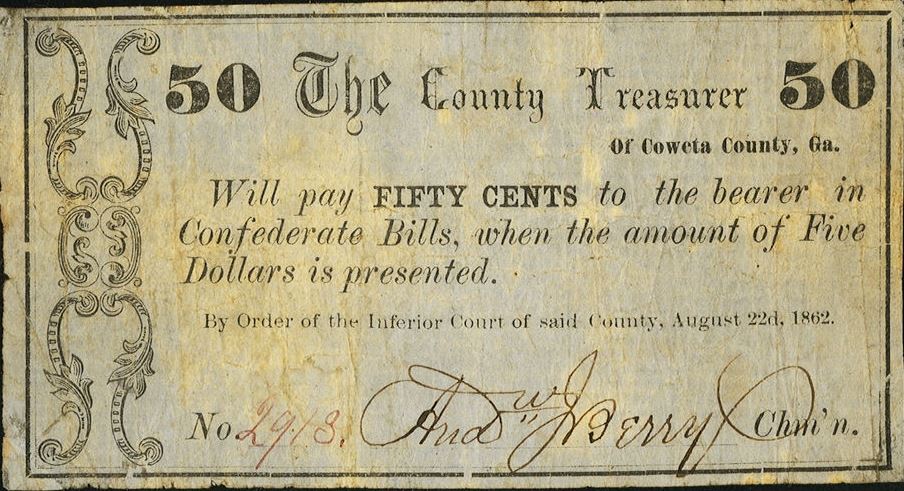 50 The County Treasurer 50
Of Coweta County, Ga.
Will pay FIFTY CENTS to the bearer in
Confederate Bills, when the amount of Five
Dollars is presented.
By Order of the Inferior Court of said County, August 22d, 1862.
No 2918. Andw J Berry Chm'n.